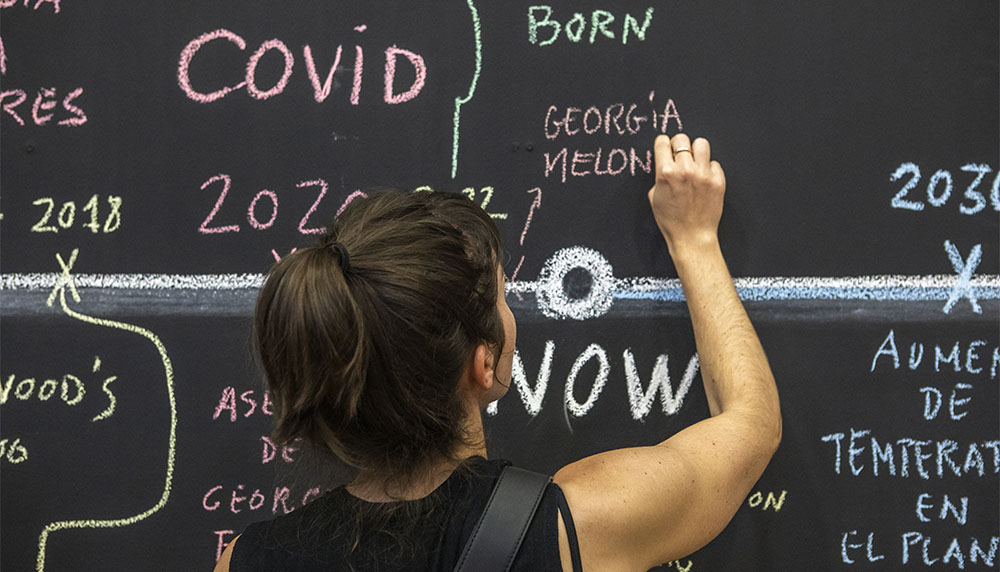 COViD
BORN
RES
GEORGiA
MELON
2018
2020
22
2030
NOW
WOOD'S
ASE
DE
GEORG
ON
AUMEN
DE
TEMPERAT
EN
EL PLAN